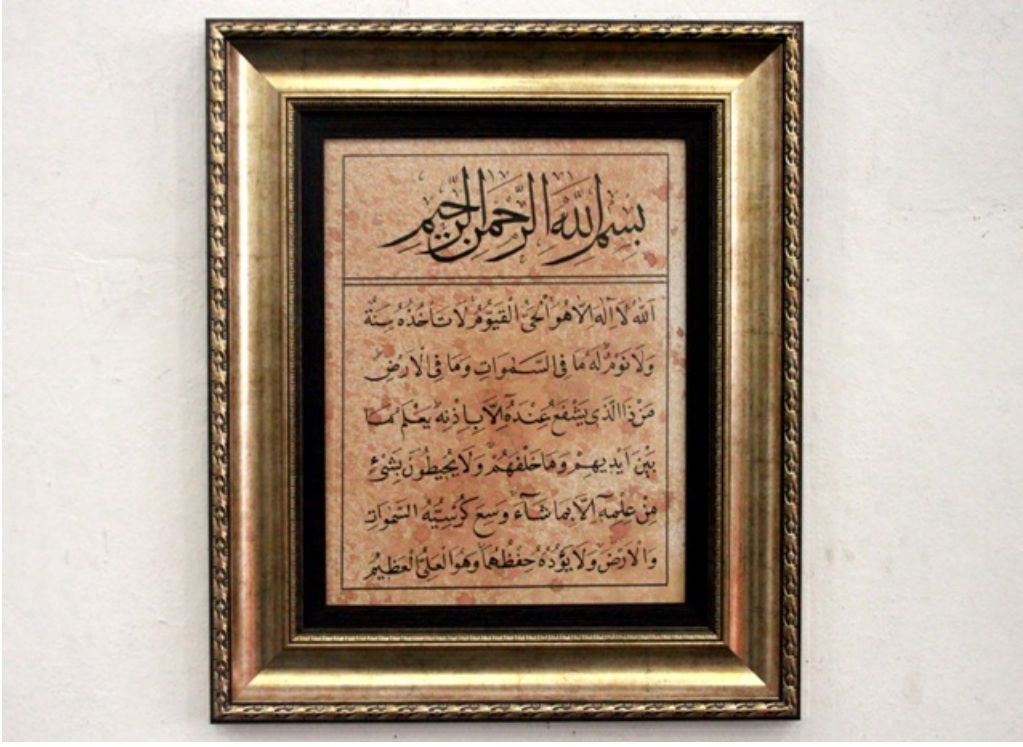 بِسْمِ اللهِ الرَّحْمٰنِ الرَّحِيمِ
اَللهُ لَا اِلٰهَ اِلَّا هُوَ الْحَيُّ الْقَيُّوْمُ لَا تَأْخُذُهُ سِنَةٌ
وَلَا نَوْمٌ لَهُ مَا فِى السَّمٰوَاتِ وَمَا فِى الْاَرْضِ
مَنْ ذَا الَّذِى يَشْفَعُ عِنْدَهُ اِلَّا بِاِذْنِهِ يَعْلَمُ مَا
بَيْنَ اَيْدِيهِمْ وَمَا خَلْفَهُمْ وَلَا يُحِيطُونَ بِشَىْءٍ
مِنْ عِلْمِهِ اِلَّا بِمَا شَآءَ وَسِعَ كُرْسِيُّهُ السَّمٰوَاتِ
وَالْاَرْضَ وَلَا يَؤُدُهُ حِفْظُهُمَا وَهُوَ الْعَلِىُّ الْعَظِيمُ